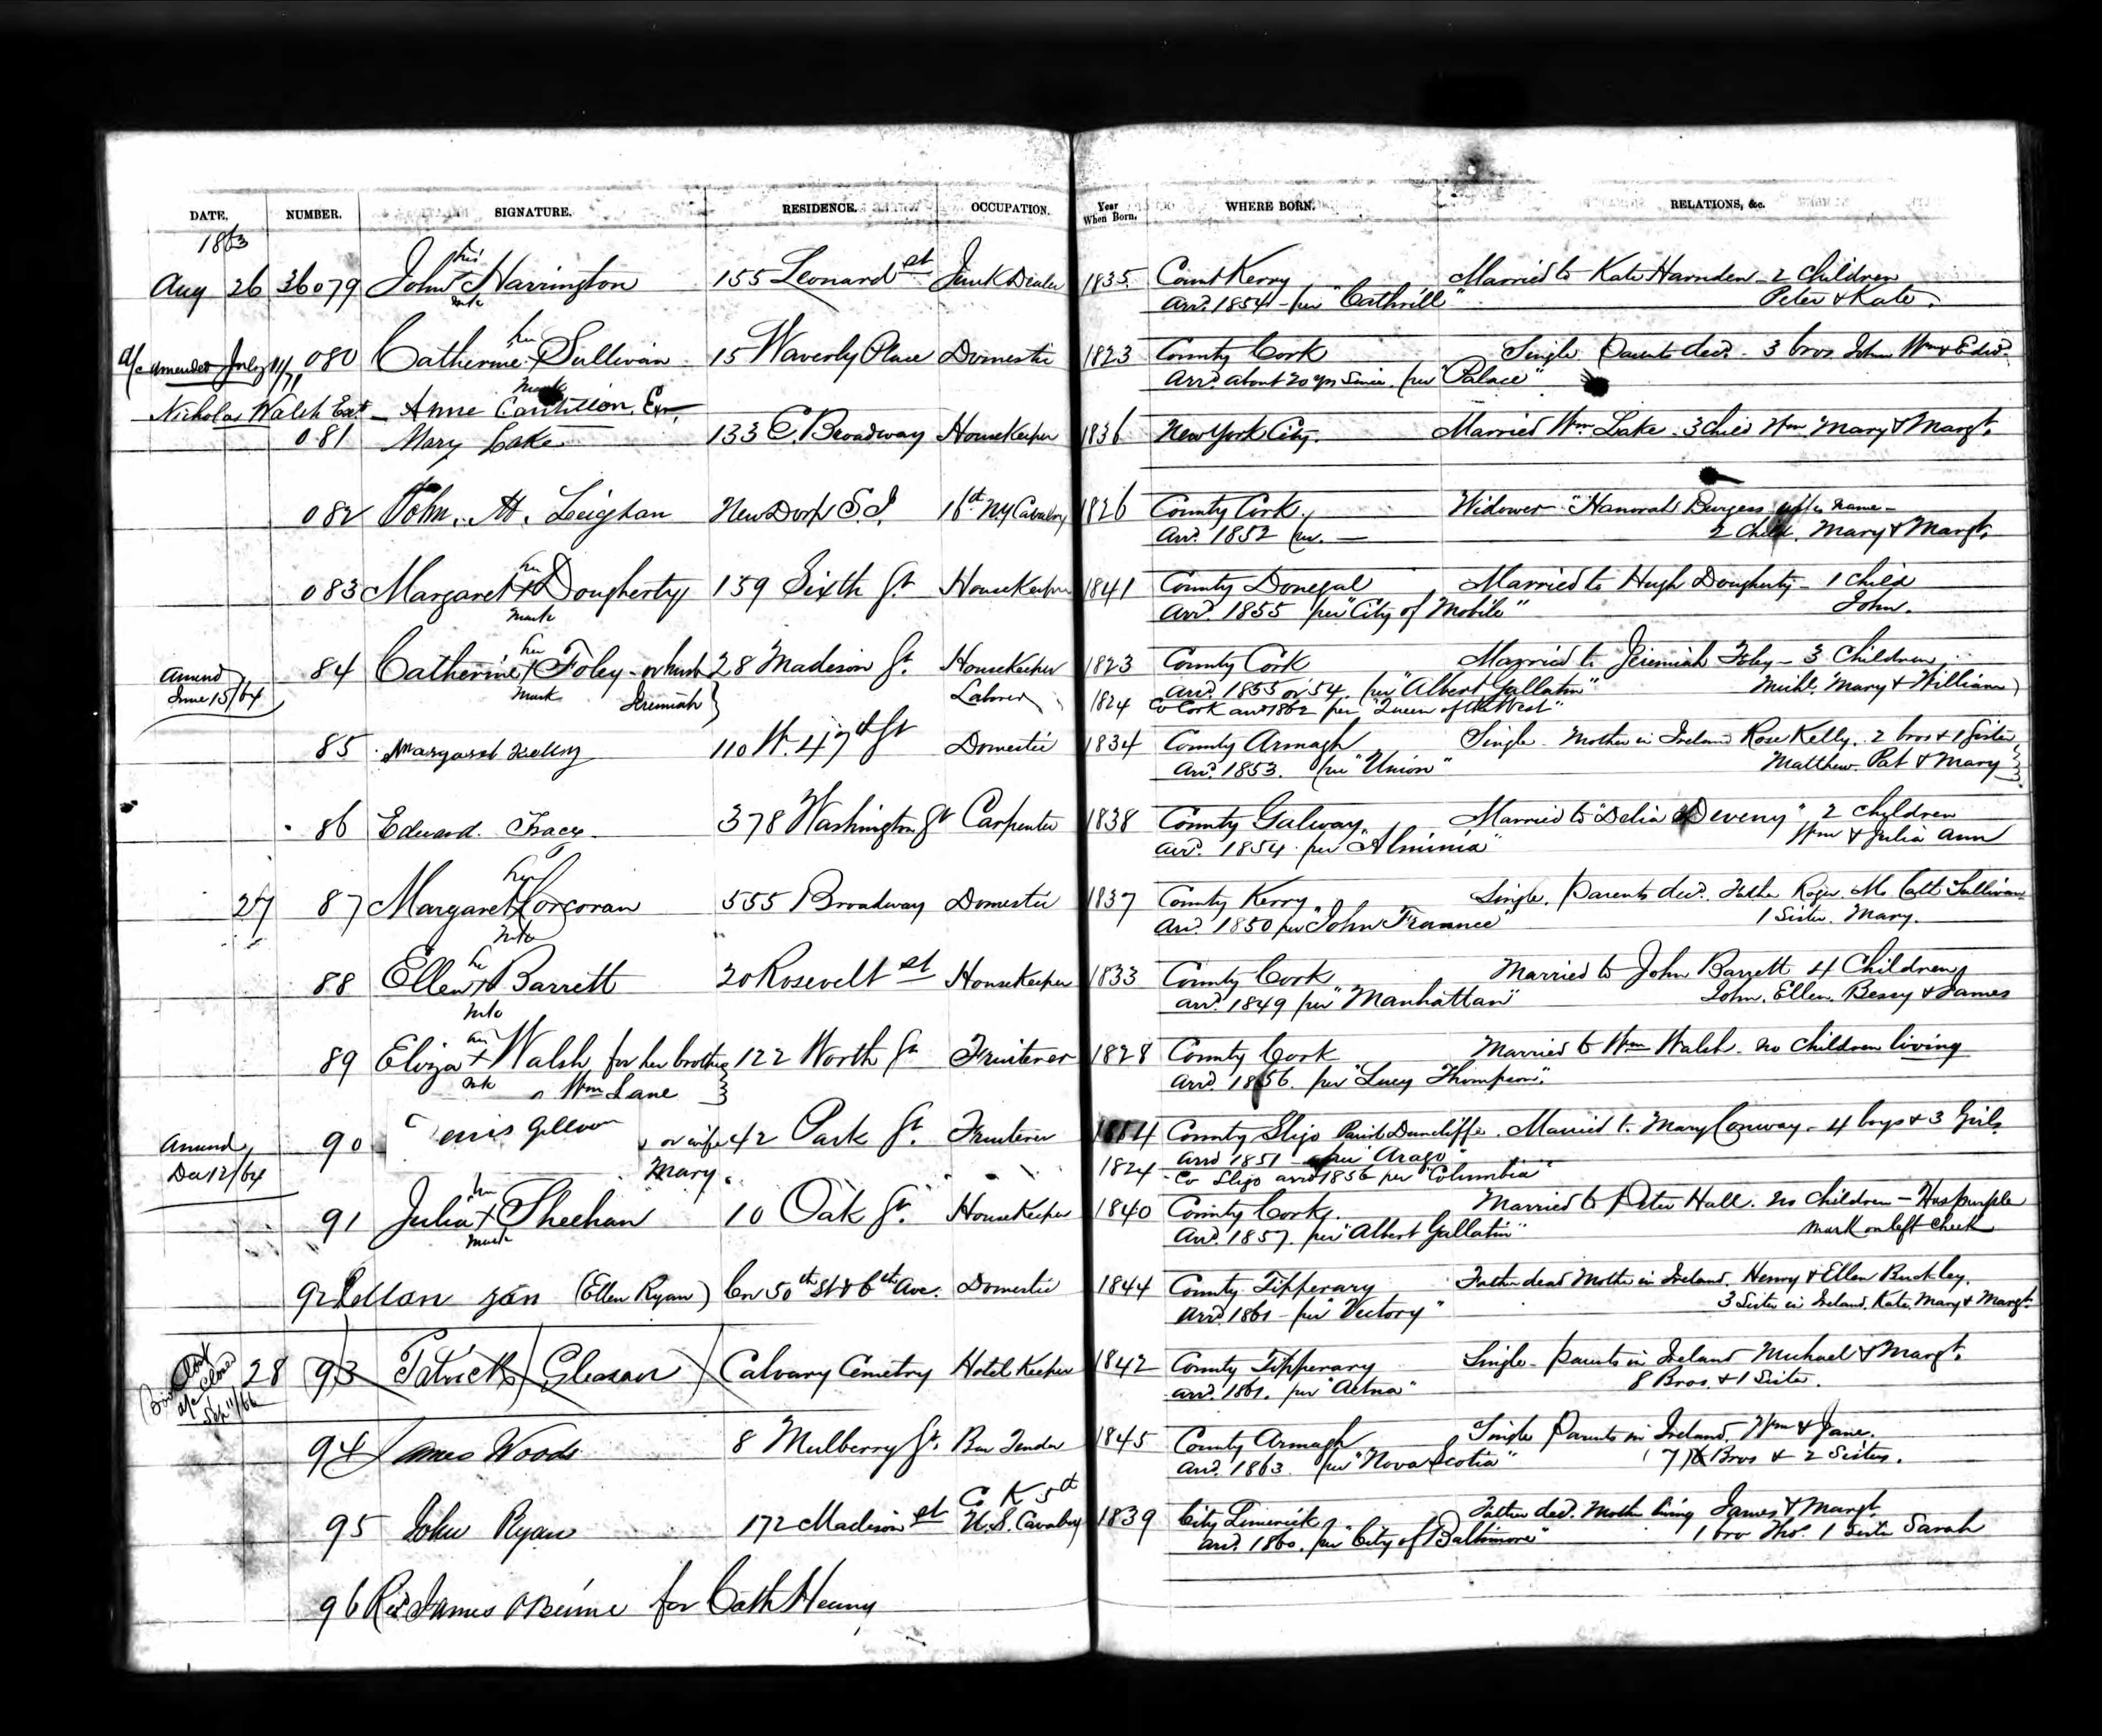 DATE. NUMBER. SIGNATURE. RESIDENCE. OCCUPATION. Year When Born. WHERE BORN. RELATIONS, &c.
1863
Aug 26 36079 John his x mk Harrington 155 Leonard st Junk Dealer 1835 Count Kerry Married to Kate Harnden 2 Children
Arrd. 1854 - per "Cathrill" Peter & Kate.
a/c amended July 11/71 080 Catherine her x mark Sullivan 15 Waverly Place Domestic 1823 County Cork Single Parents decd. - 3 bros John Wm & Edwd.
Arrd about 20 yrs since per "Palace"
Nicholas Walsh Ext - Anne Cantillon Ex.
081 Mary Lake 133 E. Broadway Housekeeper 1836 New York City. Married Wm Lake. 3 Chied Wm Mary & Margt.
082 John. H. Leighan New Dorp S.I. 16th NY Cavalry 1826 County Cork. Widower "Hanorah Burgess wifes name -
Arrd. 1852 per. — 2 Child. Mary & Margt.
083 Margaret her x mark Dougherty 159 Sixth St Housekeeper 1841 County Donegal Married to Hugh Dougherty - 1 Child
Arrd. 1855 per "City of Mobile" John.
Amend June 15/64 84 Catherine her x mark Foley or husb Jeremiah 28 Madison St. Housekeeper 1823 County Cork Married to Jeremiah Foley - 3 Children
Arrd. 1855 or 54. per "Albert Gallatin" Michl. Mary & William
Laborer 1824 Co Cork arrd 1862 per "Queen of the West"
85 Margaret Kelly 110 W. 47th St Domestic 1834 County Armagh Single - Mother in Ireland Rose Kelly. 2 bros & 1 Sister
Arrd. 1853. per "Union" Matthew. Pat & Mary
86 Edward. Tracy 378 Washington St Carpenter 1838 County Galway Married to "Delia Deveny" 2 children
Arrd. 1854 per "Alminia" Wm & Julia Ann
27 87 Margaret her x mk Corcoran 555 Broadway Domestic 1837 County Kerry Single. Parents decd. Father Roger. Mo Cath Sullivan
Arrd. 1850 per "John Frannee" 1 Sister. Mary.
88 Ellen her x mk Barrett 20 Rosevelt st Housekeeper 1833 County Cork Married to John Barrett 4 Children
Arrd. 1849 per "Manhattan" John. Ellen. Bessy & James
89 Eliza her x mk Walsh for her brother Wm Lane 122 Worth St Fruiterer 1828 County Cork Married to Wm Walsh. no children living
Arrd. 1856. per "Lucy Thompson".
Amend Dec 12/64 90 enis Gilloon or wife Mary. 42 Park St. Fruiterer 1814 County Sligo Parish Dumcliffe. Married to Mary Conway - 4 boys & 3 Girls.
Arrd 1851 - per "Arago"
1824 Co Sligo arrd 1856 per "Columbia"
91 Julia her x mark Sheehan 10 Oak St. Housekeeper 1840 County Cork. Married to Peter Hall. no children - Has purple
Arrd. 1857. per "Albert Gallatin" mark on left cheek
92 (Ellen Ryan) Cor 50th St & 6th Ave. Domestic 1844 County Tipperary Father dead Mother in Ireland. Henry & Ellen Buckley.
Arrd. 1861 - per "Victory" 3 Sisters in Ireland. Kate. Mary & Margt.
a/c Closed Sep 11/66 28 93 Patrick Gleason Calvary Cemetry Hotel Keeper 1842 County Tipperary Single - Parents in Ireland Michael & Margt.
Arrd. 1861. per "Aetna" 8 Bros. & 1 Sister.
94 James Woods 8 Mulberry St. Bar Tender 1845 County Armagh Single Parents in Ireland. Wm & Jane.
Arrd. 1863. per "Nova Scotia" 7 Bros & 2 Sisters.
95 John Ryan 172 Madison st C. K 5th U.S. Cavalry 1839 City Limerick Father decd. Mother living James & Margt.
Arrd. 1860. per "City of Baltimore" 1 bro Thos. 1 Sister Sarah
96 Revd James O Beirne for Cath Heany